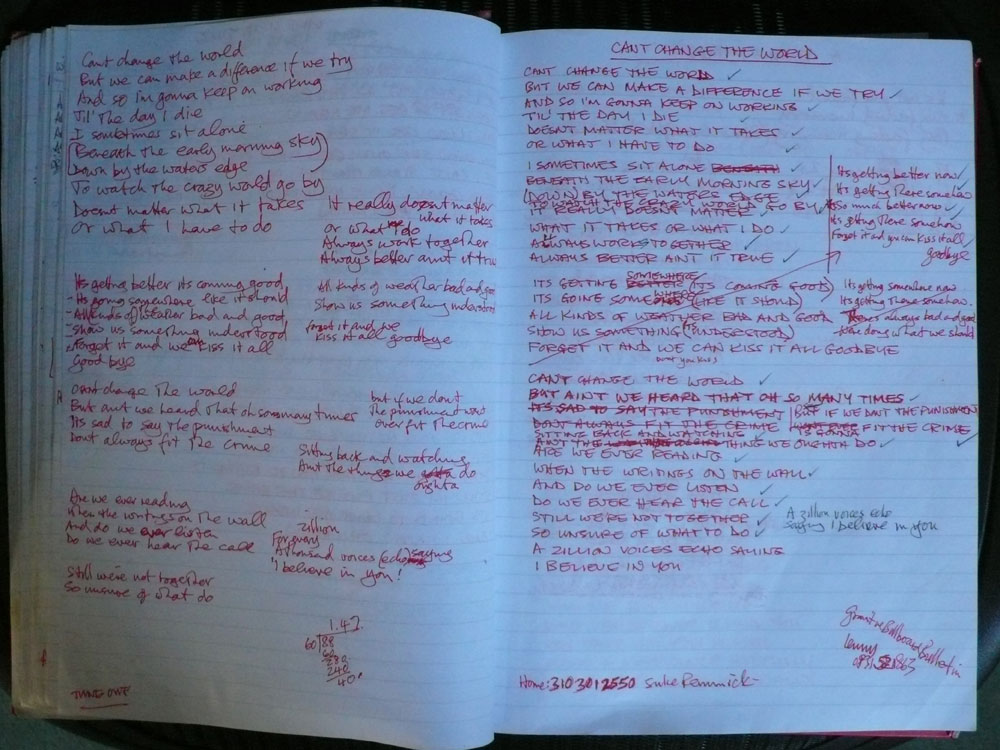 Cant change the world
But we can make a difference if we try
And so im gonna keep on working
Til' The day I die
I sometimes sit alone
(Beneath the early morning sky)
Down by the waters edge
To watch the crazy world go by
Doesnt matter what it takes
Or what I have to do
It really doesnt matter
what it takes
Or what I do
Always work together
Always better aint it true
Its getting better its coming good
- Its going somewhere like it should
- All kinds of weather bad and good
- Show us something understood
- Forget it and we can kiss it all
Good bye
All kinds of weather bad and good
Show us something understood
forget it and we
kiss it all goodbye
Cant change the world
But aint we heard that oh so many times
Its sad to say the punishment
Dont always fit the crime
but if we dont
The punishment
over fit the crime
Sitting back and watching
Aint the things we do
oughta
Are we ever reading
When the writings on the wall
And do we ever listen
Do we ever hear the call
zillion
For every
A thousand voices (echo) saying
'I believe in you!
Still we're not together
So unsure of what do
1.47
60)88
60
280
240
40
TUNE OWE
CANT CHANGE THE WORLD
CANT CHANGE THE WORLD ✓
BUT WE CAN MAKE A DIFFERENCE IF WE TRY ✓
AND SO I'M GONNA KEEP ON WORKING ✓
TIL' THE DAY I DIE ✓
DOESNT MATTER WHAT IT TAKES ✓
OR WHAT I HAVE TO DO ✓
I SOMETIMES SIT ALONE BENEATH
BENEATH THE EARLY MORNING SKY ✓
(DOWN) BY THE WATERS EDGE
TO WATCH THE CRAZY WORLD GO BY ✓
IT REALLY DOESNT MATTER ✓
WHAT IT TAKES OR WHAT I DO ✓
ALWAYS WORKS TOGETHER ✓
ALWAYS BETTER AINT IT TRUE ✓
Its getting better now ✓
Its getting There somehow ✓
So much better now ✓
Its getting There somehow
Forget it and you can kiss it all
goodbye
SOMEWHERE
ITS GETTING BETTER (ITS COMING GOOD)
ITS GOING SOMEWHERE (LIKE IT SHOULD)
ALL KINDS OF WEATHER BAD AND GOOD
SHOW US SOMETHING (UNDERSTOOD)
FORGET IT AND WE CAN KISS IT ALL GOODBYE
Its getting somewhere now
Its getting There somehow.
always bad and good
what we should
CANT CHANGE THE WORLD ✓
BUT AINT WE HEARD THAT OH SO MANY TIMES ✓
ITS SAD TO SAY THE PUNISHMENT BUT IF WE DONT THE PUNISHMENT
DONT ALWAYS FIT THE CRIME FIT THE CRIME
SITTING BACK AND WATCHING
AINT THE THINGS WE OUGHTA DO ✓
ARE WE EVER READING ✓
WHEN THE WRITINGS ON THE WALL ✓
AND DO WE EVER LISTEN ✓
DO WE EVER HEAR THE CALL ✓
STILL WE'RE NOT TOGETHER ✓
SO UNSURE OF WHAT TO DO ✓
A ZILLION VOICES ECHO SAYING
I BELIEVE IN YOU
A zillion voices echo
saying I believe in you
Lenny
Home: 310 301 2550